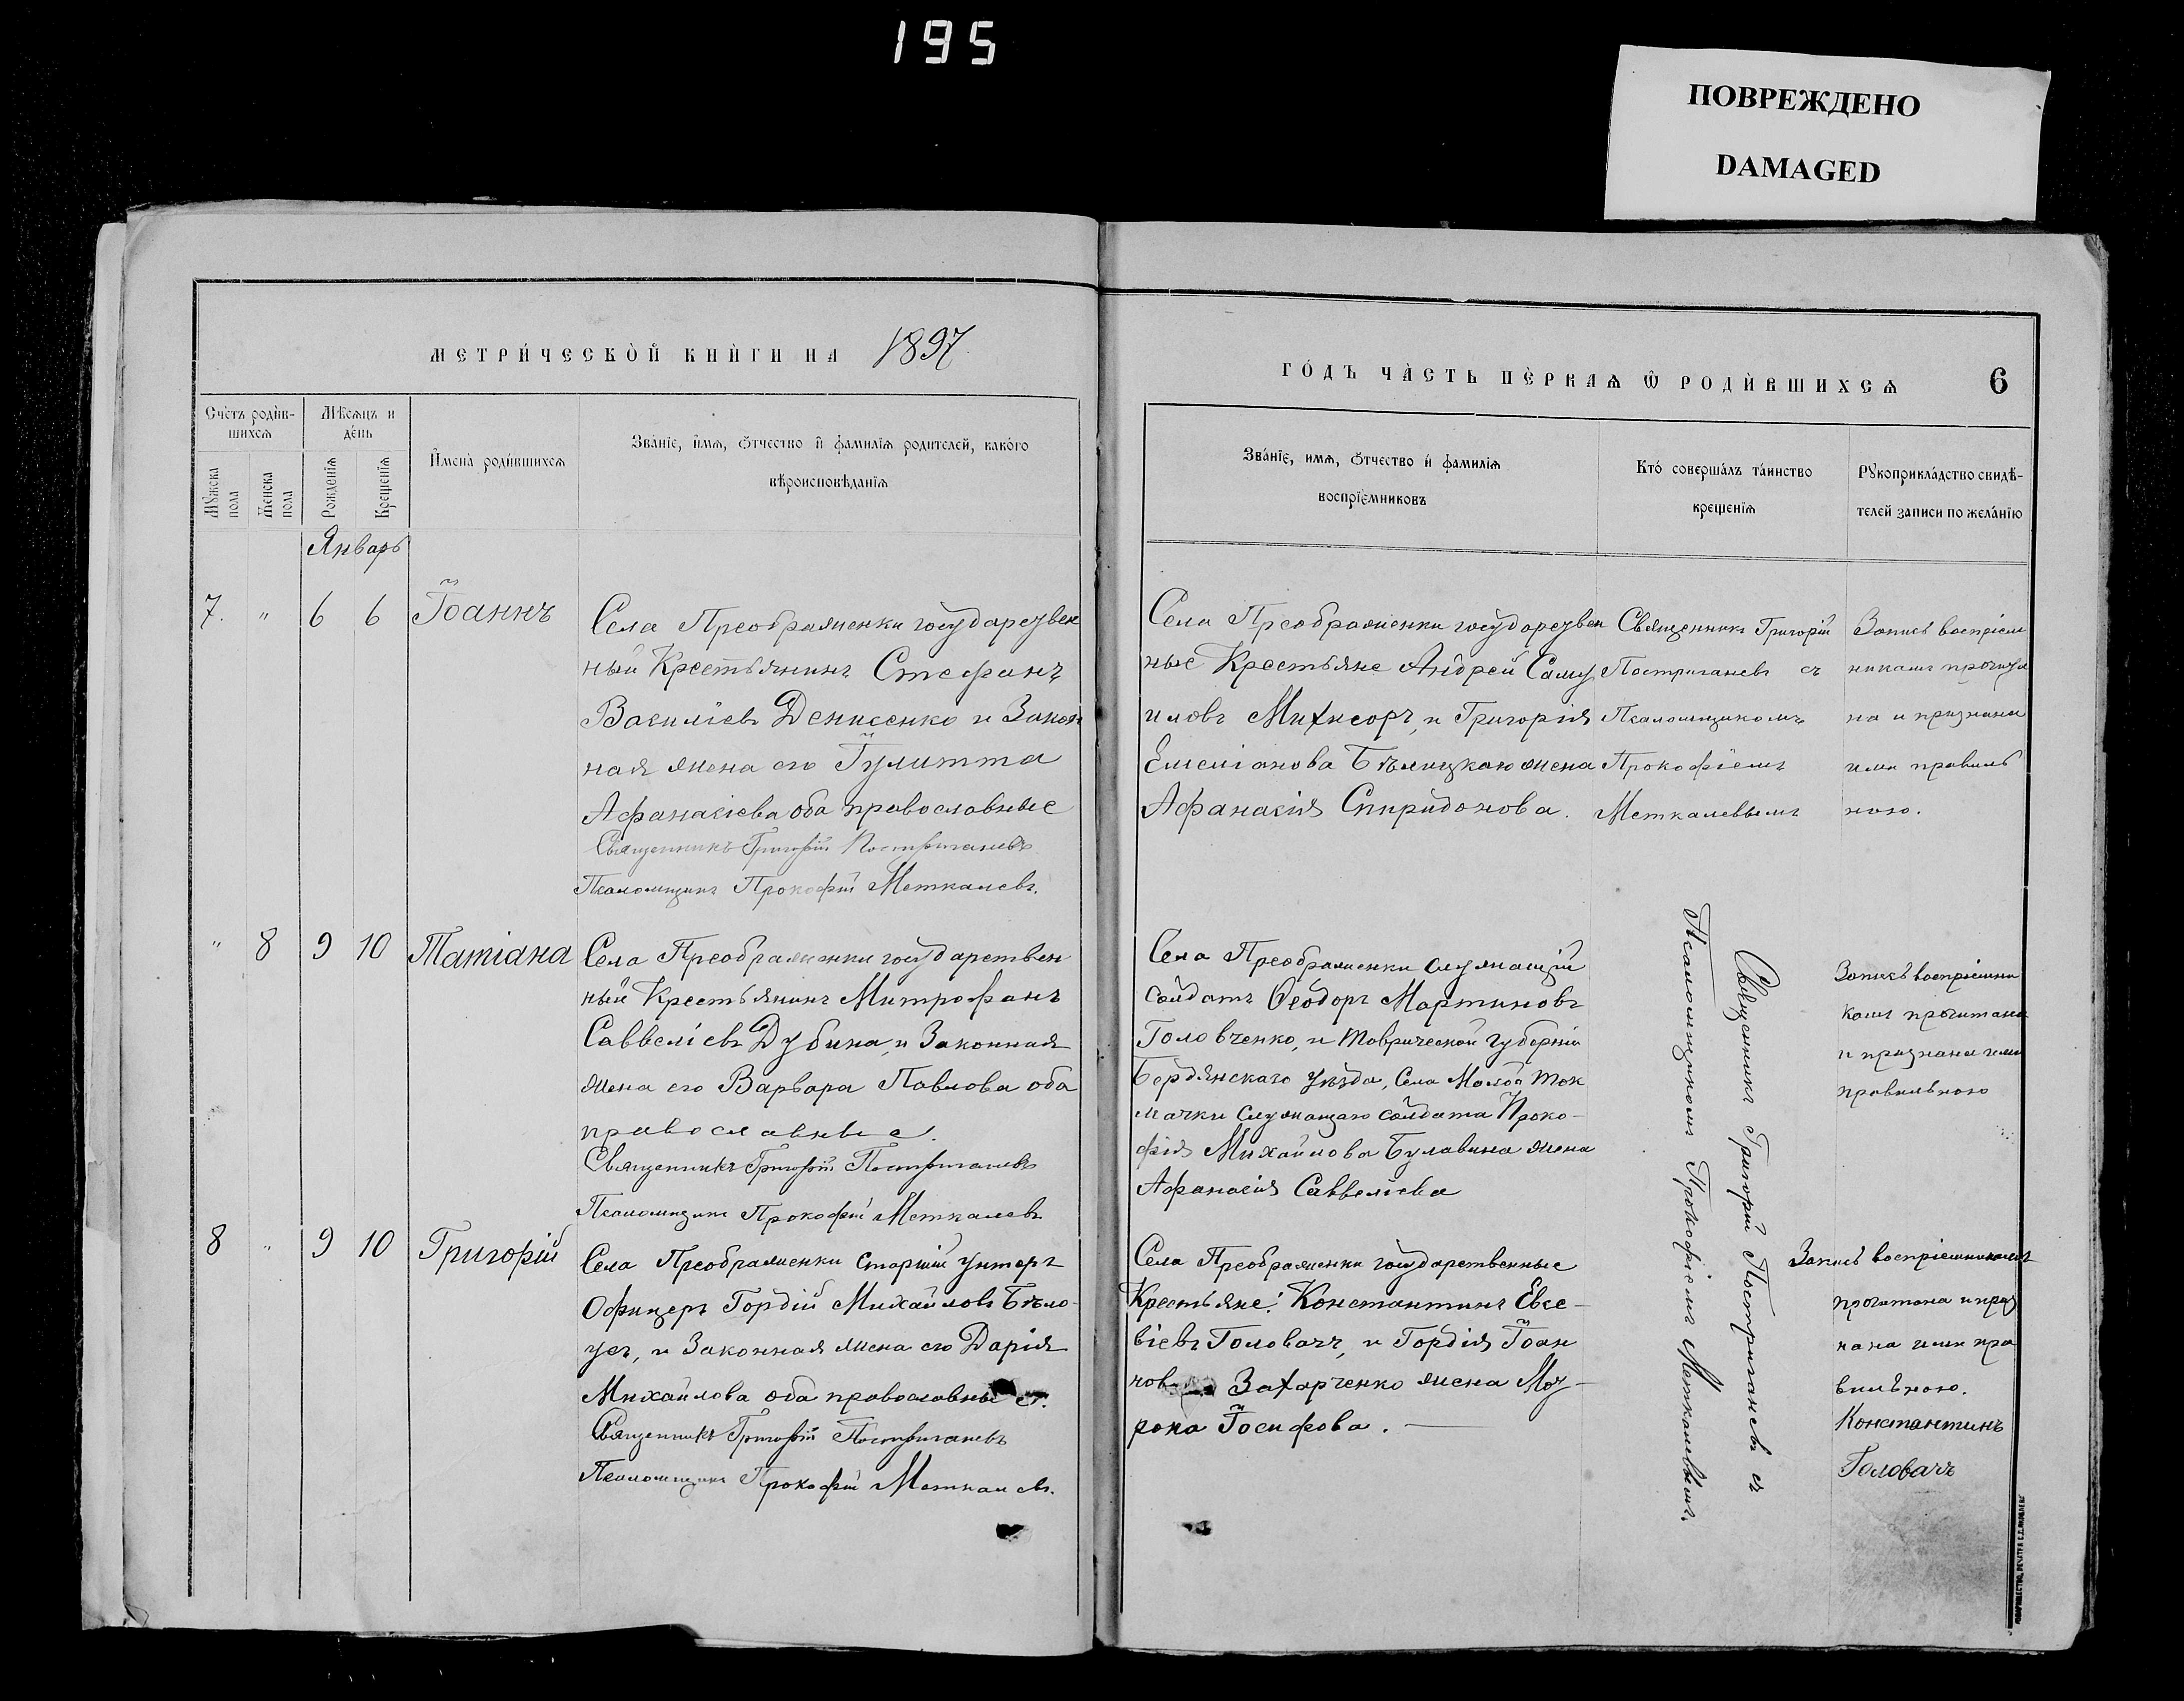 195
ПОВРЕЖДЕНО
DAMAGED
МЕТРИ́ЧЕСКО̀Й КНЍГИ НА 1897
Счётъ роди́в-
шихсѧ
Мѣ́сѧцъ и
де́нь
Мꙋжеска
пола
Женска
пола
Рожденїѧ
Крещенїѧ
И҆мена̀ роди́вшихсѧ
Зва́нїе, и҆́мѧ, ѻ҆́тчество и҆ фами́лїѧ роди́телей, како́го
вѣроисповѣ́данїѧ
Январь
7. " 6 6 Іоаннъ
Села Преображенки государствен
ный Крестьянинъ Стефанъ
Василіевъ Денисенко и Закон
ная жена его Іулитта
Афанасіева оба православные
Священникъ Григорій Постригачевъ
Псаломщикъ Прокофій Меткалевъ.
" 8 9 10 Татіана
Села Преображенки государствен
ный Крестьянинъ Митрофанъ
Саввеліевъ Дубина, и Законная
жена его Варвара Павлова оба
православные.
Священникъ Григорій Постригачевъ
Псаломщикъ Прокофій Меткалевъ
8 " 9 10 Григорій
Села Преображенки старшій унтеръ
Офицеръ Гордій Михайловъ Бѣло-
усъ, и Законная жена его Дарія
Михайлова оба православные.
Священникъ Григорій Постригачевъ
Псаломщикъ Прокофій Меткалевъ.
ГО́ДЪ ЧА̀СТЬ ПЕ́РВАѦ Ѡ҆ РОДИ́ВШИХСѦ 6
Зва́нїе, имѧ, ѻ҆́тчество и҆ фамилїѧ
воспрїе́мниковъ
Кто́ соверша́лъ та́инство
крещенїѧ
Рꙋкоприкла́дство свидѣ́-
телей записи по жела́нїю
Села Преображенки государствен
ные Крестьяне Андрей Саму
иловъ и Григорія
Емеліанова Бѣлицкаго жена
Афанасія Спиридонова.
Священникъ Григорій
Постригачевъ съ
Псаломщикомъ
Прокофіемъ
Меткалевымъ
Запись воспріем
никамъ прочита
на и признана
ими правиль
ною.
Села Преображенки служащій
солдатъ Ѳеодоръ Мартиновъ
Головченко, и Таврической губерніи
Бердянскаго уѣзда, Села Малой Ток
мачки служащаго солдата Проко-
фія Михайлова Булавина жена
Афанасія Саввеліева
Священникъ Григорій Постригачевъ съ
Псаломщикомъ Прокофіемъ Меткалевымъ.
Запись воспріемни
камъ прочитана
и признана ими
правильною
Села Преображенки государственные
Крестьяне: Константинъ Евсе-
віевъ Головачъ, и Гордія Іоан
нов Захарченко жена
Іосифова.
Запись воспріемникамъ
прочитана и приз
нана ими пра
вильною.
Константинъ
Головачъ